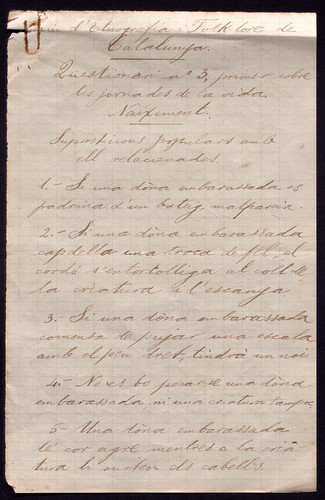 d'Etnografía i Folk-lore de
Catalunya.
Questionari nº 3, primer sobre
les jornades de la vida.
Naixement.
Supersticions populars amb
ell relacionades
1.- Si una dòna embarassada es
padrina d'un bateig, malpareix.
2.- Si una dòna embarassada
capdella una troca de fil, el
cordó s'entortolliga al coll de
la criatura i l'escanya.
3.- Si una dòna embarassada
comensa de pujar una escala
amb el peu dret, tindrà un noi.
4.- No es bo pesarse una dòna
embarassada ni una criatura tampoc.
5- Una dòna embarassada
té cor agre mentres a la cria-
tura li surten els cabells.